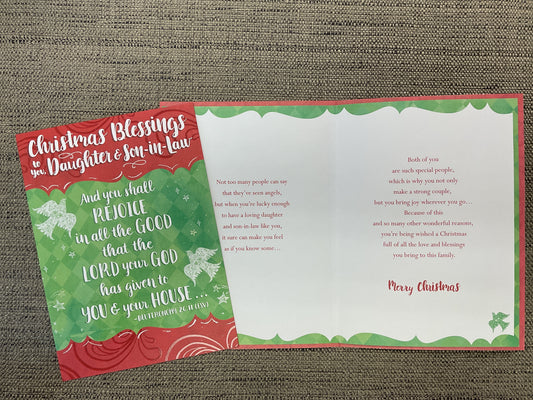 Christmas Blessings
to you, Daughter & Son-in-Law
And you shall
REJOICE
in all the GOOD
that the
LORD your GOD
has given to
YOU & your HOUSE...
Not too many people can say
that they've seen angels,
but when you're lucky enough
to have a loving daughter
and son-in-law like you,
it sure can make you feel
as if you know some...
Both of you
are such special people,
which is why you not only
make a strong couple,
but you bring joy wherever you go...
Because of this
and so many other wonderful reasons,
you're being wished a Christmas
full of all the love and blessings
you bring to this family.
Merry Christmas